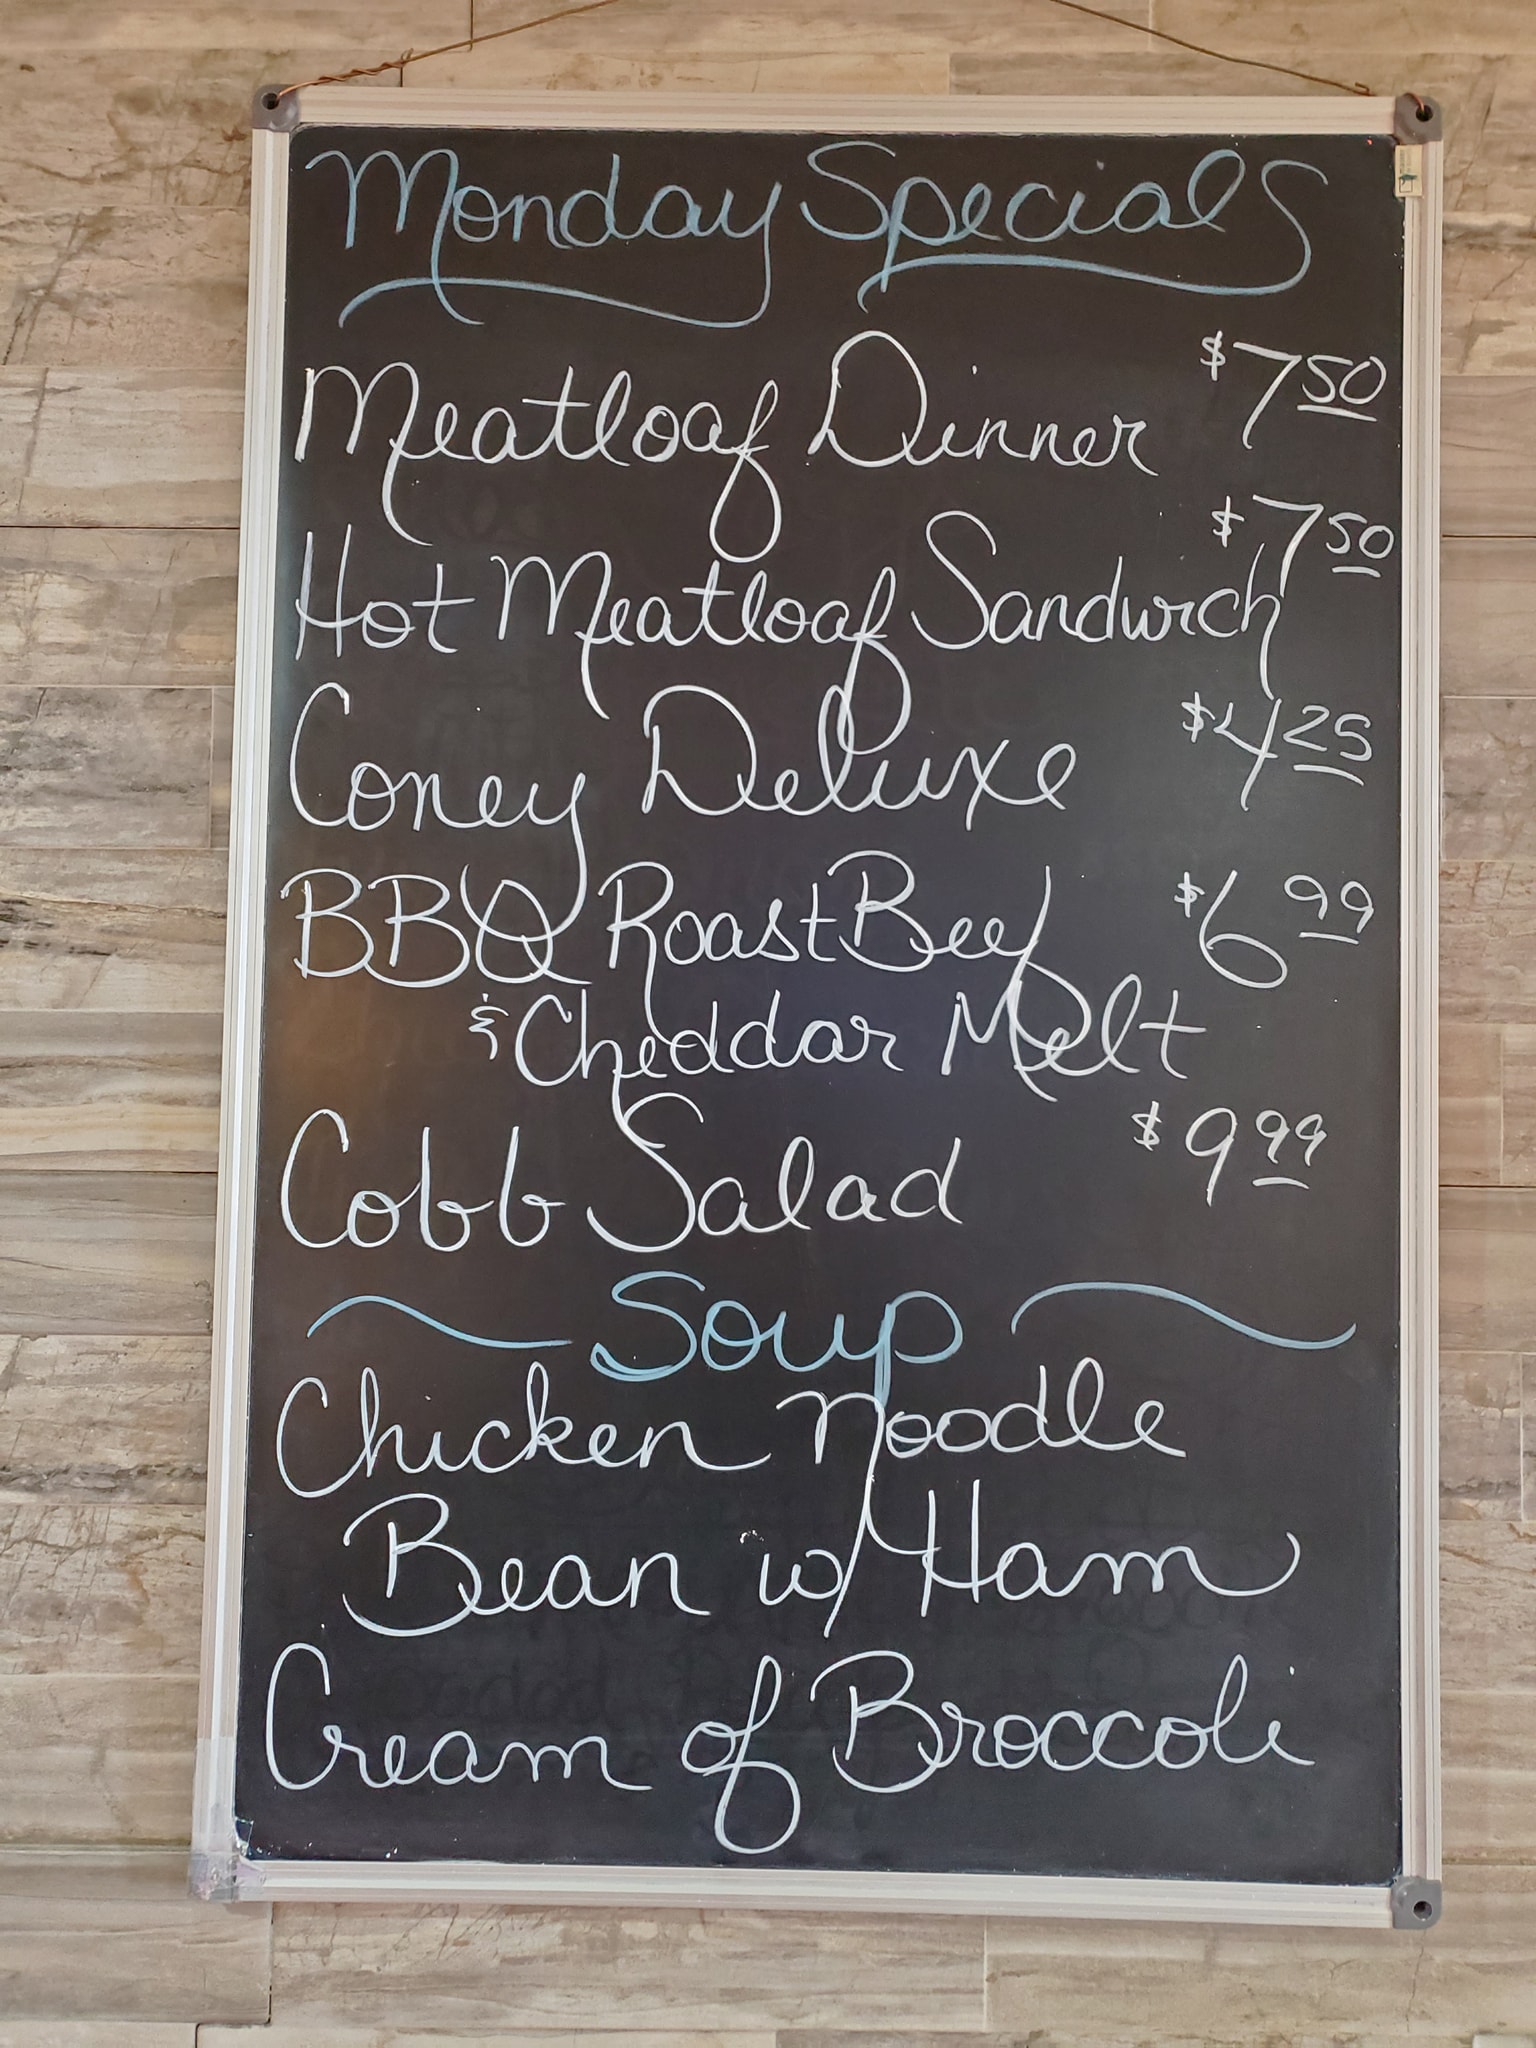 Monday Specials
Meatloaf Dinner $7 50
Hot Meatloaf Sandwich $7 50
Coney Deluxe $4 25
BBQ Roast Beef $6 99
& Cheddar Melt
Cobb Salad $9 99
Soup
Chicken Noodle
Bean w/ Ham
Cream of Broccoli